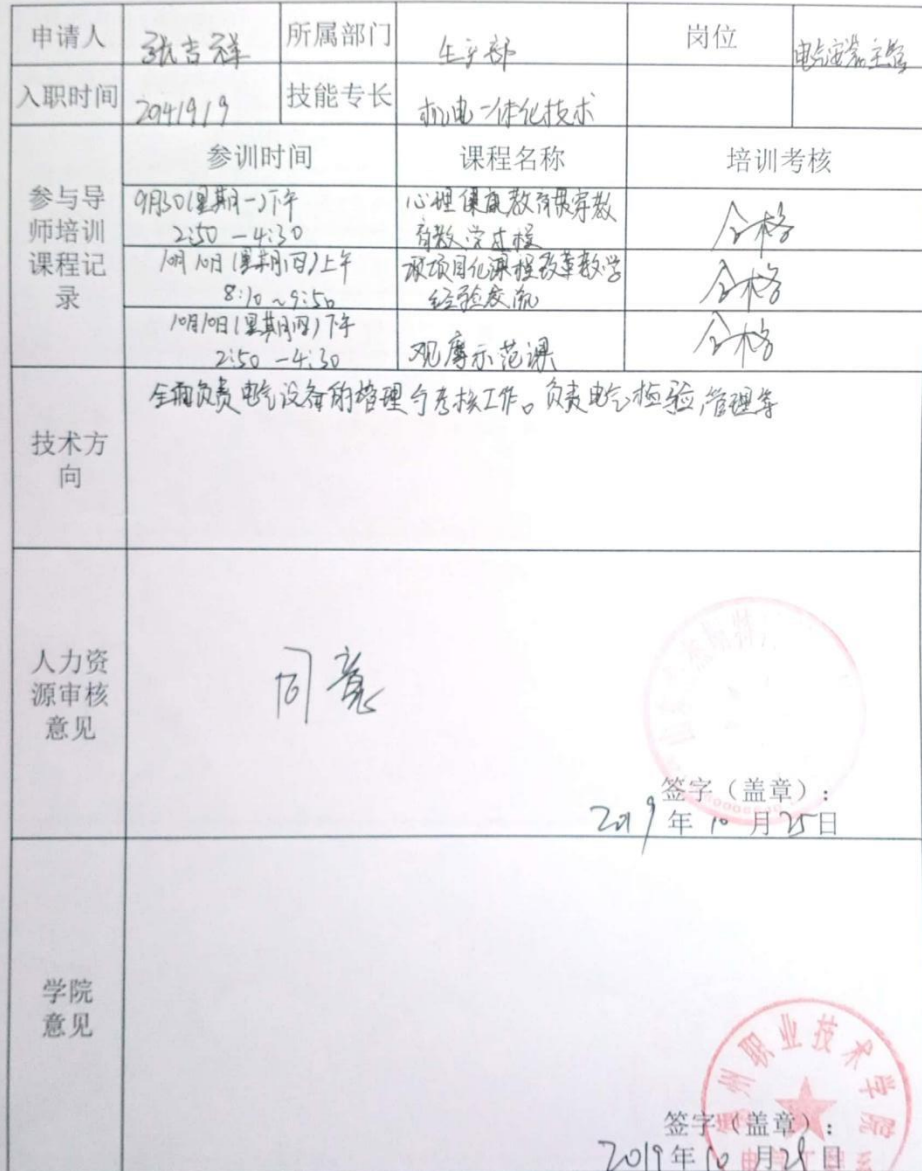 申请人 张吉祥 所属部门 生产部 岗位 电气安装主管
入职时间 技能专长 机电一体化技术
参与导师培训课程记录 参训时间 课程名称 培训考核
9月30(星期一)下午
2:50 — 4:30
心理健康教育课
合格
10月10日(星期四)上午
8:10 ~ 9:50
项目化课程改革教学
经验交流
合格
10月10日(星期四)下午
2:50 — 4:30
观摩示范课
合格
技术方向
全面负责电气设备的管理与考核工作。负责电气检验管理等
人力资源审核意见
同意
签字（盖章）：
2019年10月25日
学院意见
州职业技术学院
签字（盖章）：
2019年10月28日